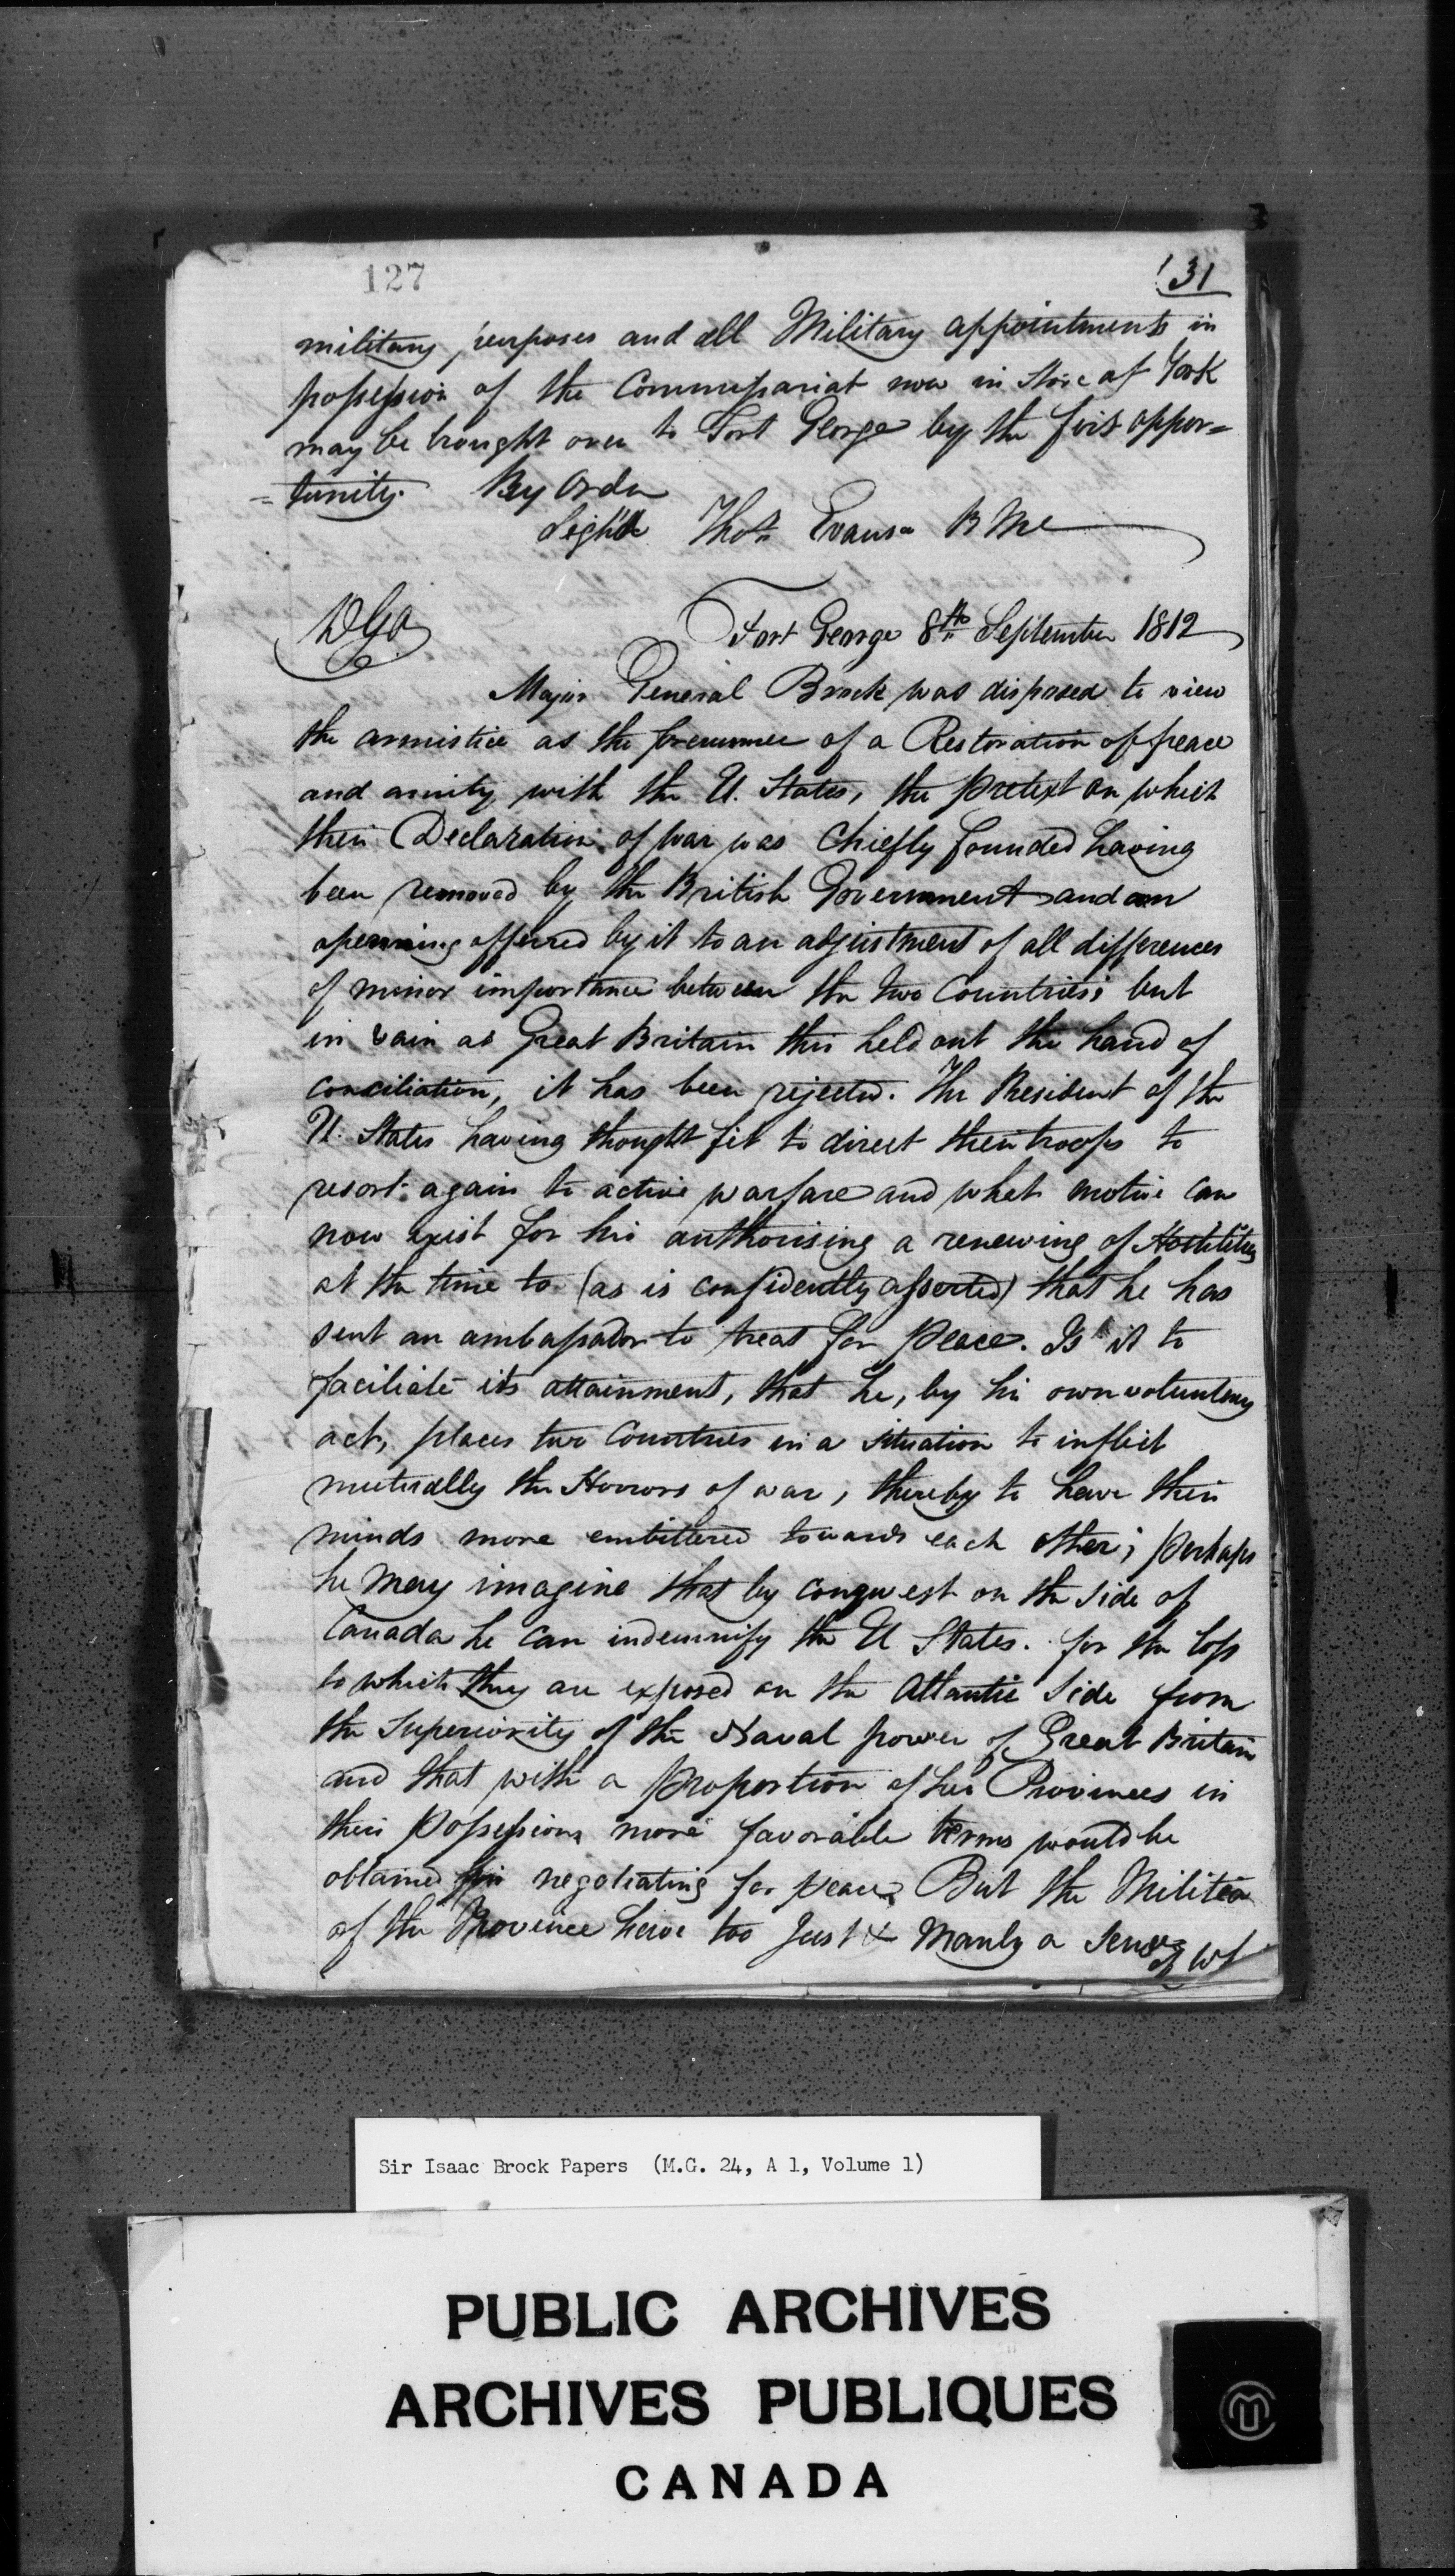 127
131
military purposes and all Military appointments in
possession of the Commissariat now in Store at York
may be brought over to Fort George by the first oppor=
=tunity. By Order
Sign'd Thos. Evans BMr
DGO
Fort George 8th September 1812
Major General Brock was disposed to view
the armistice as the forerunner of a Restoration of peace
and amity with the U. States, the pretext on which
their Declaration of war was Chiefly founded having
been removed by the British Government and an
openning offerred by it to an adjustment of all differences
of minor importance between the two Countries; but
in vain as Great Britain thus held out the hand of
conciliation, it has been rejected. The President of the
U. States having thought fit to direct their troops to
resort again to active warfare and what motive can
now exist for his authorising a renewing of Hostilities
at the time to (as is confidently asserted) that he has
sent an ambassador to treat for peace. Is it to
faciliate its attainment, that he, by his own voluntary
act, places two Countries in a situation to inflict
mutually the Horrors of war, thereby to have their
minds more embittered towards each other; perhaps
he may imagine that by conquest on the side of
Canada he can indemnify the U States. for the loss
to which they are exposed on the Atlantic Side from
the Superiority of the Naval power of Great Britain
and that with a proportion of her Provinces in
their possessions more favorable terms would be
obtained in negotiating for peace. But the Militia
of the Province have too Just & Manly a Sense
of wt
Sir Isaac Brock Papers (M.G. 24, A 1, Volume 1)
PUBLIC ARCHIVES
ARCHIVES PUBLIQUES
CANADA